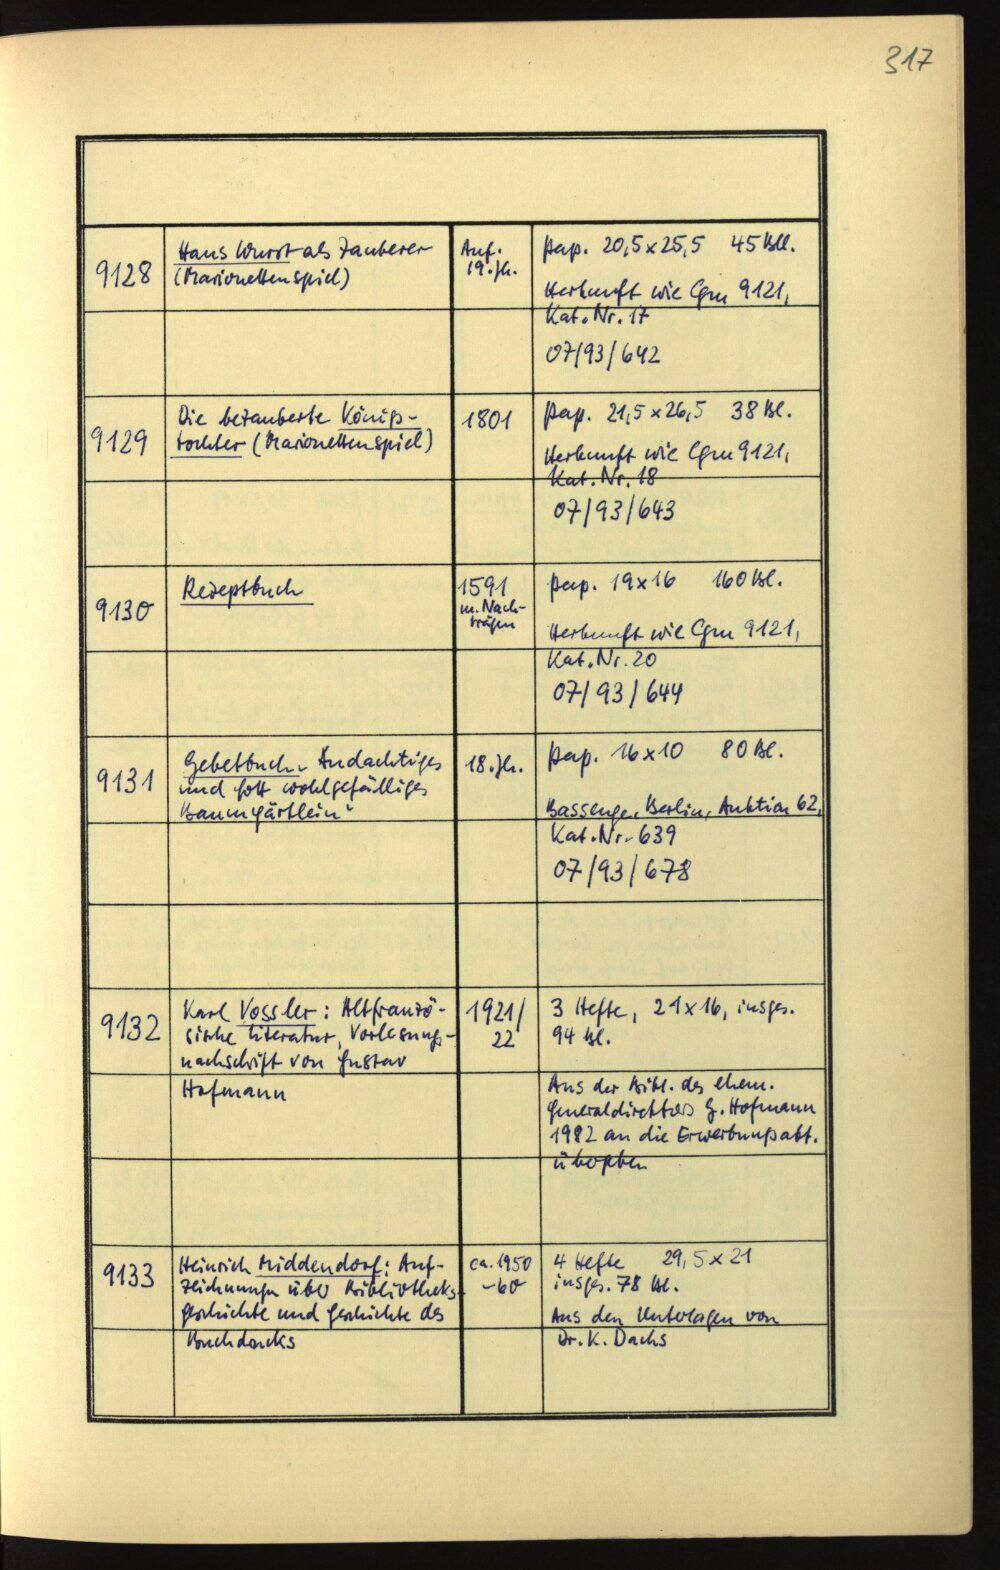 317
9128
Hans Wurst als Zauberer
(Marionettenspiel)
Anf.
19. Jh.
Pap. 20,5 x 25,5 45 Bll.
Herkunft wie Cgm 9121,
Kat. Nr. 17
07/93/642
9129
Die bezauberte Königs-
tochter (Marionettenspiel)
1801
Pap. 21,5 x 26,5 38 Bl.
Herkunft wie Cgm 9121,
Kat. Nr. 18
07/93/643
9130
Rezeptbuch
1591
m. Nach-
trägen
Pap. 19 x 16 160 Bl.
Herkunft wie Cgm 9121,
Kat. Nr. 20
07/93/644
9131
Gebetbuch „Andächtiges
und Gott wohlgefälliges
Baumgärtlein“
18. Jh.
Pap. 16 x 10 80 Bl.
Bassenge, Berlin, Auktion 62,
Kat. Nr. 639
07/93/678
9132
Karl Vossler: Altfranzö-
sische Literatur, Vorlesungs-
nachschrift von Gustav
Hofmann
1921/
22
3 Hefte, 21 x 16, insges.
94 Bl.
Aus der Bibl. des ehem.
Generaldirektors G. Hofmann
1982 an die Erwerbungsabt.
übergeben
9133
Heinrich Middendorf: Auf-
zeichnungen über Bibliotheks-
geschichte und Geschichte des
Buchdrucks
ca. 1950
-60
4 Hefte 29,5 x 21
insges. 78 Bl.
Aus den Unterlagen von
Dr. K. Dachs